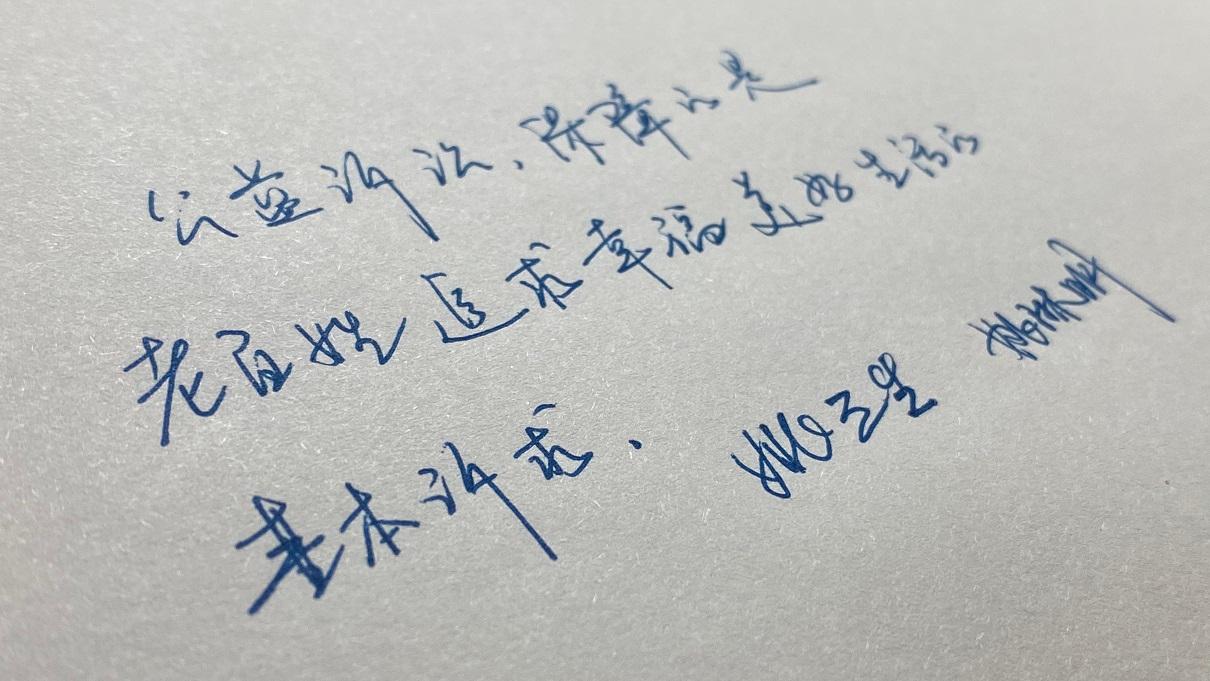 公益诉讼、保障的是
老百姓追求幸福美好生活的
基本诉求.